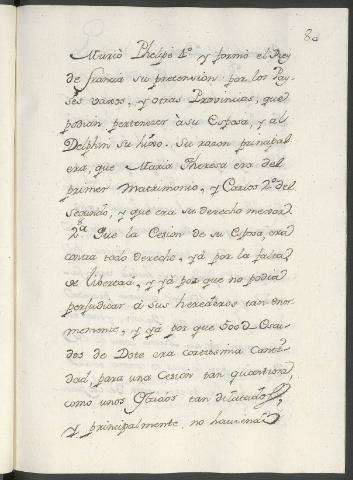 8.
Murió Phelipe 4.º y formó el Rey
de francia su pretension por los Pay-
ses vaxos, y otras Provincias, que
podian pertenecer à su Esposa, y al
Delphin su hijo. Su razon principal
era, que Maria Theresa era del
primer Matrimonio, y Carlos 2.º del
segundo, y que era su derecho menor.
2.ª Que la Cesion de su Esposa, era
contra todo derecho, yá por la falta
de libertad, y yá por que no podia
perjudicar á sus herederos tan enor
memente, y yá por que 500 d Escu-
dos de Dote era cortissima Canti-
dad, para una Cesion tan quantiosa,
como unos Estados tan dilatados,
y principalmente no haviend